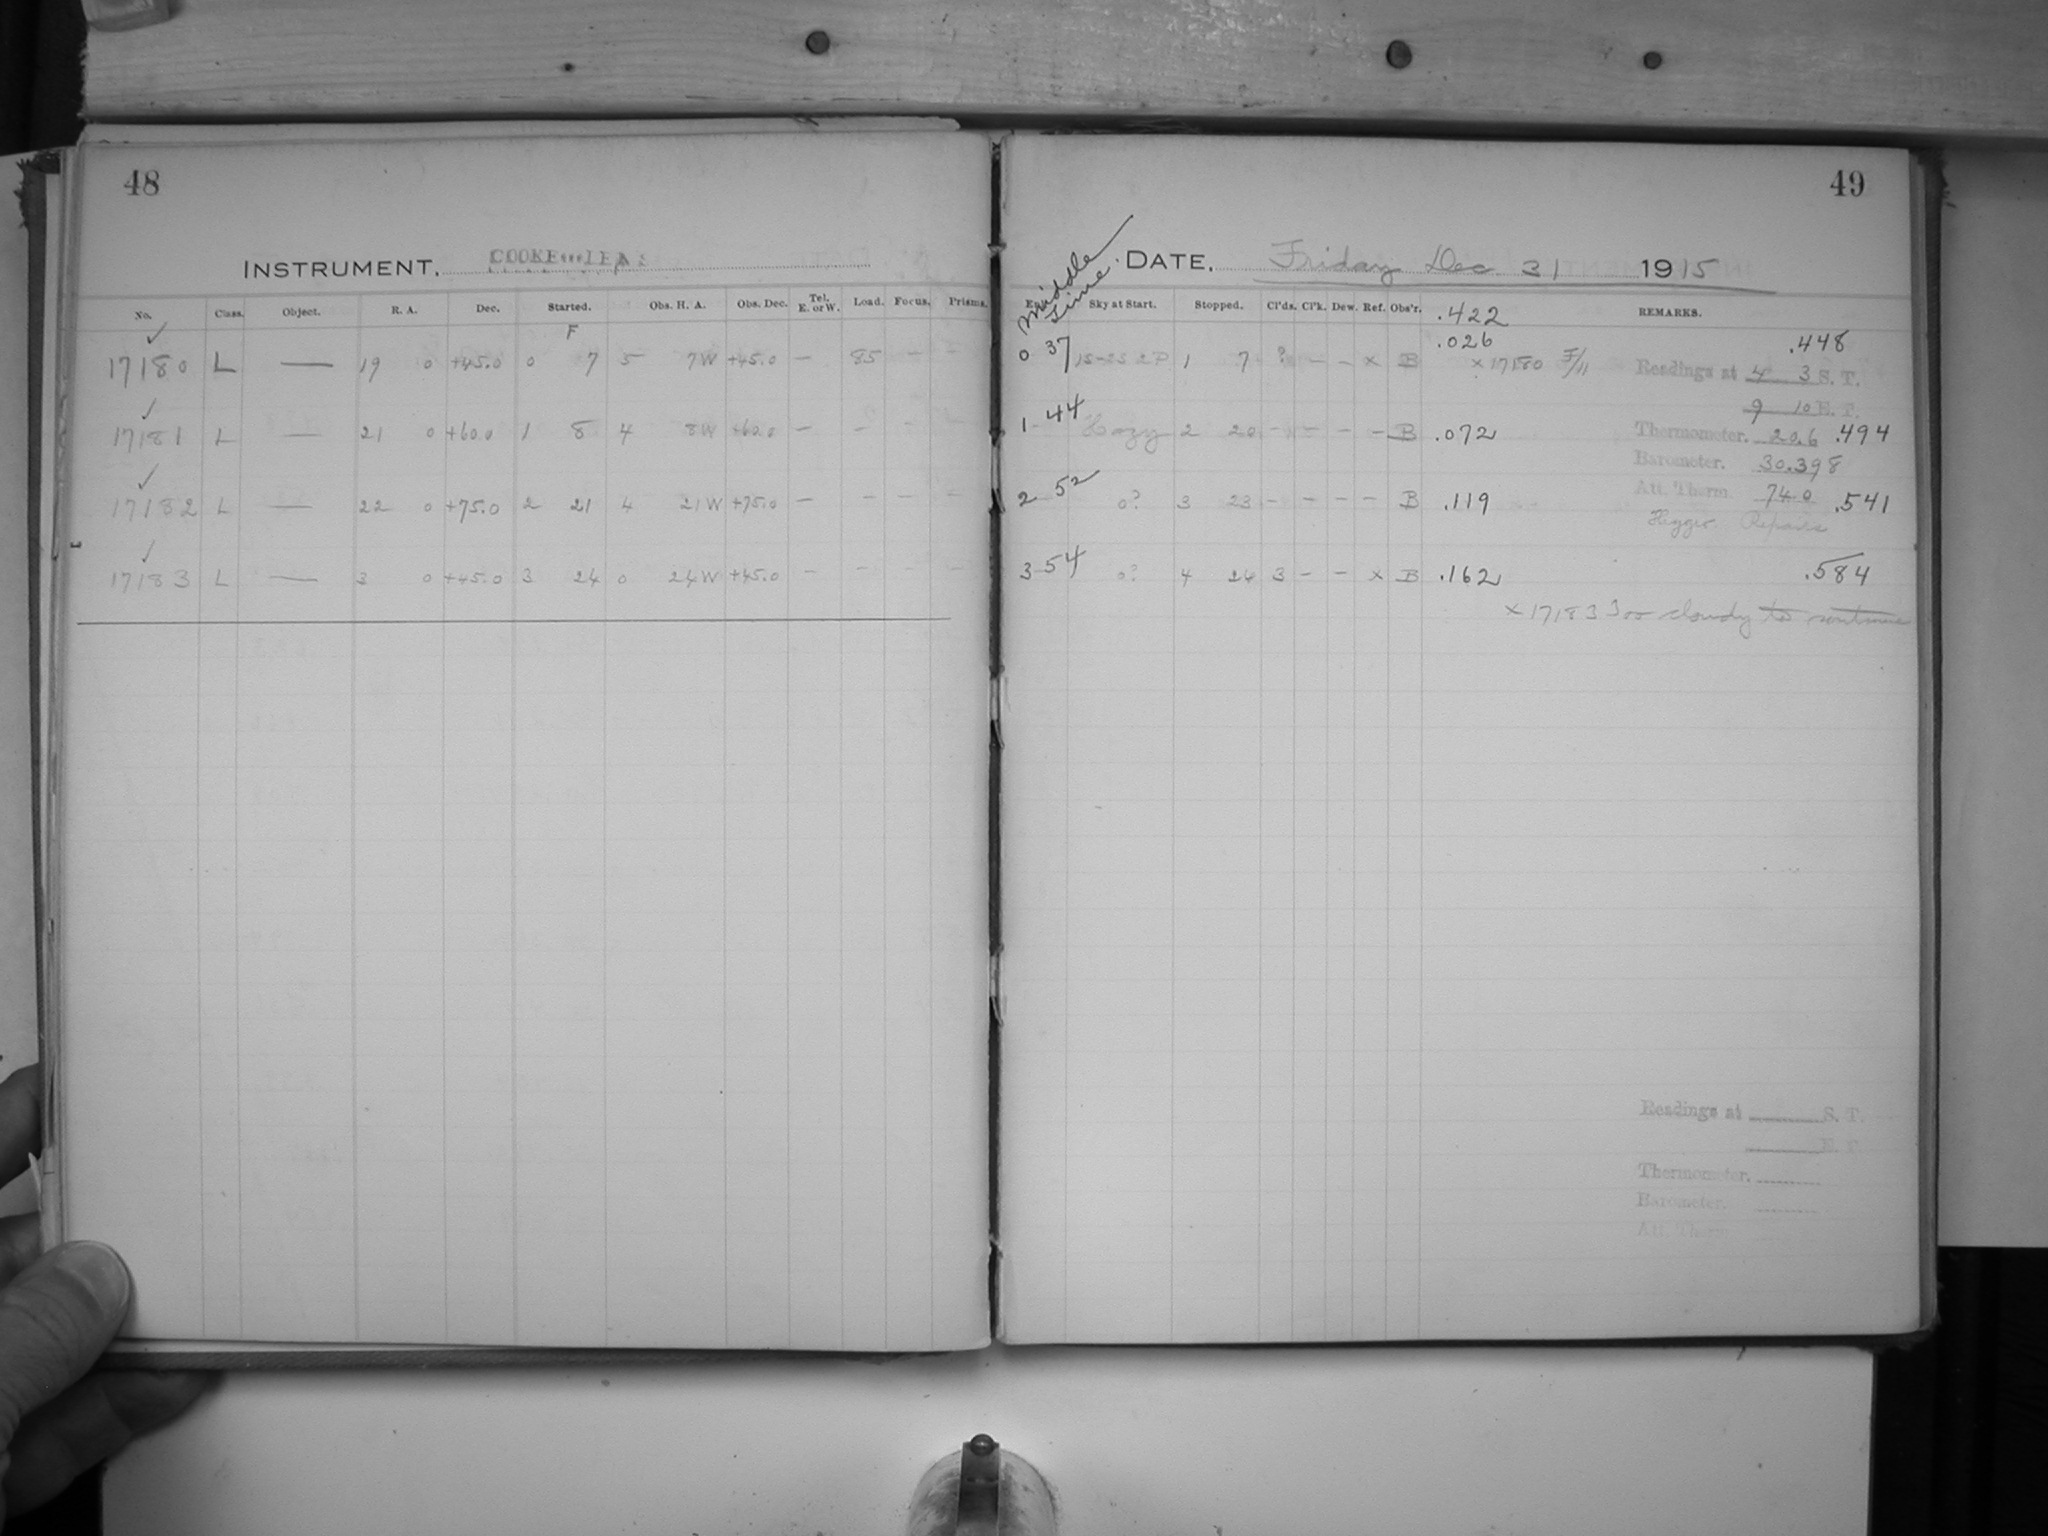 48
INSTRUMENT. COOKE LENS
No. Class. Object. R. A. Dec. Started. Obs. H. A. Obs. Dec. Tel. E. or W. Load. Focus. Prisms.
F
17180 L — 19 0 +45.0 0 7 5 7W +45.0 — 85 — —
17181 L — 21 0 +60.0 1 8 4 8W +60.0 — — — —
17182 L — 22 0 +75.0 2 21 4 21W +75.0 — — — —
17183 L — 3 0 +45.0 3 24 0 24W +45.0 — — — —
49
Middle Time. DATE. Friday Dec 31 1915
Sky at Start. Stopped. Cl'ds. Cl'k. Dew. Ref. Obs'r. .422 REMARKS.
.026 .448
0 37 15-25 2P 1 7 ? — — x B x 17180 F/11 Readings at 4 3 S. T.
9 10 E. T.
1 44 Hazy 2 20 — — — — B .072 Thermometer. 20.6 .494
Barometer. 30.398
2 52 0? 3 23 — — — — B .119 Att. Therm. 74.0 .541
Hygro Repairs
3 54 0? 4 24 3 — — x B .162 .584
x 17183 Too cloudy to continue
Readings at S. T.
E. T.
Thermometer.
Barometer.
Att. Therm.